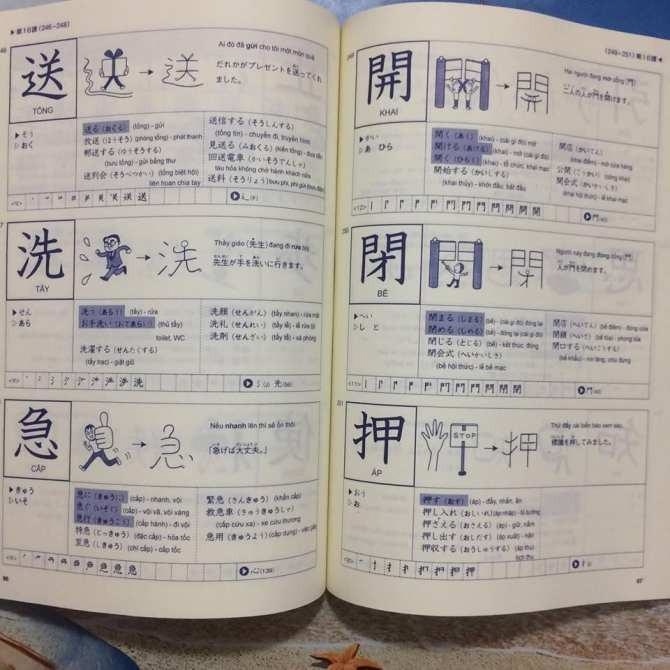 ▶ 第16課 (246~248)
送
TỐNG
Ai đó đã gửi cho tôi một món quà
だれかがプレゼントを送ってくれ
ました。
▶そう
▷おく
送る（おくる）(tống) - gửi
放送（ほうそう）(phóng tống) - phát thanh
郵送する（ゆうそうする）
(bưu tống) - gửi bằng thư
送別会（そうべつかい）(tống biệt hội)
liên hoan chia tay
送信する（そうしんする）
(tống tín) - chuyển đi, truyền hình
見送る（みおくる）(kiến tống) - đưa tiễn
回送電車（かいそうでんしゃ）
tàu hỏa không chở hành khách nữa
送料（そうりょう）bưu phí, phí gửi
洗
TẨY
Thầy giáo (先生) đang đi rửa
先生が手を洗いに行きます。
▶せん
▷あら
洗う（あらう）(tẩy) - rửa
お手洗い（おてあらい）(thủ tẩy)
toilet, WC
洗濯する（せんたくする）
(tẩy trạc) - giặt giũ
洗顔（せんがん）(tẩy nhan) - rửa mặt
洗礼（せんれい）(tẩy lễ) - lễ rửa tội
洗剤（せんざい）(tẩy tễ) - xà phòng
急
CẤP
Nếu nhanh lên thì sẽ ổn thôi
「急げば大丈夫。」
▶きゅう
▷いそ
急に（きゅうに）(cấp) - nhanh, vội
急ぐ（いそぐ）(cấp) - vội vã, vội vàng
急行（きゅうこう）(cấp hành) - đi vội
特急（とっきゅう）(đặc cấp) - hỏa tốc
至急（しきゅう）(chí cấp) - cấp tốc
緊急（きんきゅう）(khẩn cấp)
救急車（きゅうきゅうしゃ）
(cấp cứu xa) - xe cứu thương
急用（きゅうよう）(cấp dụng)
心(139)
(249~251) 第16課 ◀
開
KHAI
Hai người đang mở cổng (門)
二人の人が門を開けます。
▶かい
▷あ ひら
開く（あく）(khai) - (cái gì đó) mở
開ける（あける）(khai) - mở (cái gì đó)
開く（ひらく）(khai) - tổ chức, khai mạc
開始する（かいしする）
(khai thủy) - khởi đầu, bắt đầu
開店（かいてん）
(khai điếm) - mở cửa hàng
公開（こうかい）(công khai)
開会式（かいかいしき）
(khai hội thức) - lễ khai mạc
閉
BẾ
Người này đang đóng cổng (門)
人が門を閉めます。
▶へい
▷し と
閉まる（しまる）(bế) - (cái gì đó) đóng lại
閉める（しめる）(bế) - đóng (cái gì đó) lại
閉じる（とじる）(bế) - kết thúc, đóng
閉会式（へいかいしき）
(bế hội thức) - lễ bế mạc
閉店（へいてん）(bế điếm) - đóng cửa
閉口する（へいこうする）
押
ÁP
Thử đẩy cái biển báo xem sao.
標識を押してみました。
STOP
▶おう
▷お
押す（おす）(áp) - đẩy, nhấn, ấn
押し入れ（おしいれ）(áp nhập) - tủ tường
押さえる（おさえる）(áp) - giữ, nắm
押し出す（おしだす）(áp xuất) - nặn
押収する（おうしゅうする）(áp thu)
tịch thu